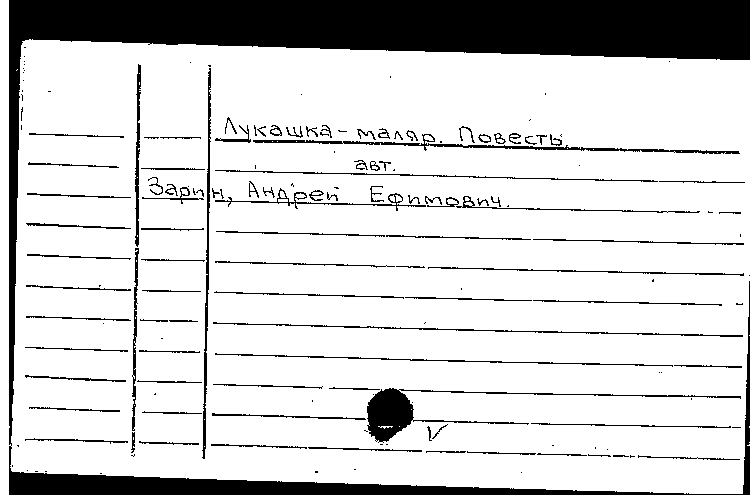 Лукашка-маляр. Повесть.
авт.
Зарин, Андрей Ефимович.